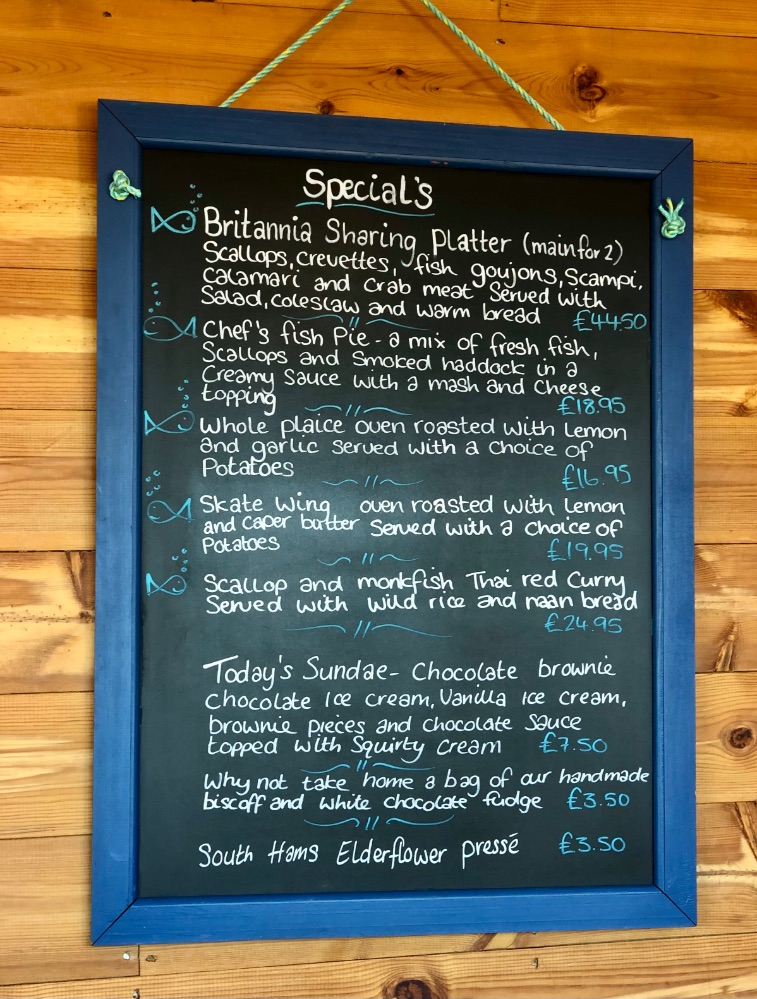 Special's
Britannia Sharing Platter (main for 2)
Scallops, crevettes, fish goujons, Scampi,
Calamari and Crab meat Served with
Salad, coleslaw and warm bread £44.50
Chef's fish Pie - a mix of fresh fish,
Scallops and Smoked haddock in a
Creamy Sauce with a mash and cheese
topping £18.95
Whole plaice oven roasted with Lemon
and garlic Served with a choice of
Potatoes £16.95
Skate Wing oven roasted with Lemon
and caper butter Served with a choice of
Potatoes £19.95
Scallop and monkfish Thai red Curry
Served with wild rice and naan bread
£24.95
Today's Sundae - Chocolate brownie
Chocolate Ice cream, Vanilla Ice cream,
brownie pieces and chocolate Sauce
topped with Squirty cream £7.50
Why not take home a bag of our handmade
biscoff and white chocolate fudge £3.50
South Hams Elderflower pressé £3.50